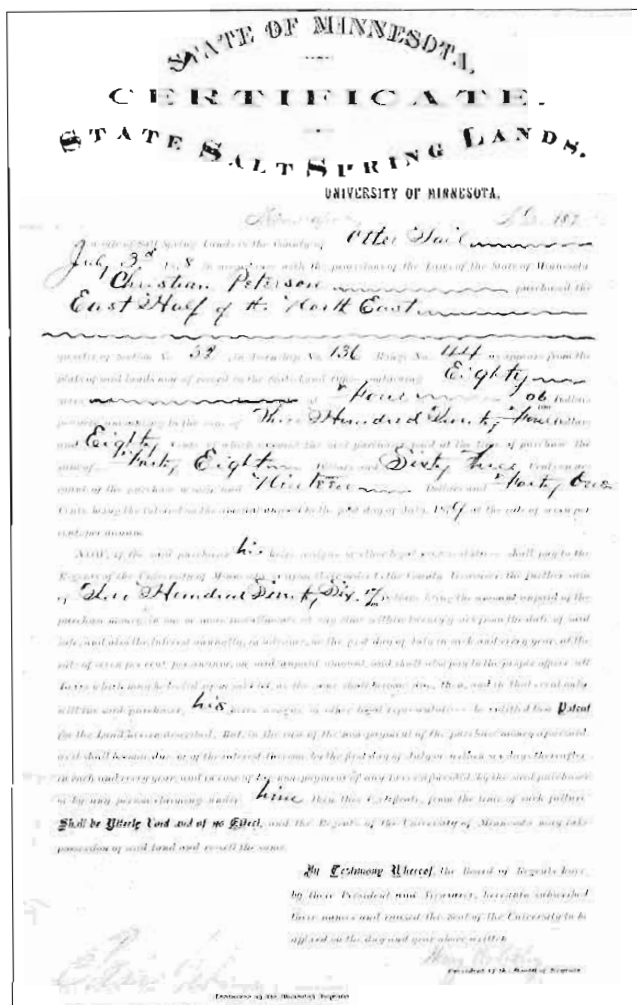 STATE OF MINNESOTA,
CERTIFICATE.
STATE SALT SPRING LANDS.
UNIVERSITY OF MINNESOTA.
187
sale of Salt Spring Lands in the County of Otter Tail
July 3rd in accordance with the provisions of the Laws of the State of Minnesota
Christian Peterson purchased the
East Half of the North East
quarter of Section No. in Township No. 136 Range No. 44 as appears from the
plats of said lands now of record in the State Land Office, embracing Eighty
acres at Four 06 Dollars
per acre, amounting to the sum of Three Hundred Dollars
and Eighty Cents, of which amount the said purchaser paid at the time of purchase the
sum of Forty Eight Dollars and Sixty three Cents on ac-
count of the purchase money, and Nineteen Dollars and Forty
Cents, being the interest on the unpaid amount to the first day of July, 1879 at the rate of seven per
cent. per annum.
NOW, if the said purchaser his heirs, assigns or other legal representatives shall pay to the
Regents of the University of Minnesota, or upon State order to the County Treasurer, the further sum
of Hundred Six being the amount unpaid of the
purchase money, in one or more installments at any time within twenty years from the date of said
sale, and also the interest annually, in advance, on the first day of July in each and every year, at the
rate of seven per cent. per annum, on said unpaid amount, and shall also pay to the proper officer all
taxes which may be levied upon said lot, as the same shall become due, then, and in that event only
will the said purchaser, his heirs, assigns, or other legal representatives be entitled to a Patent
for the Land herein described. But, in the case of the non-payment of the purchase money aforesaid,
as it shall become due, or of the interest thereon, by the first day of July or within six days thereafter
in each and every year, and in case of the non-payment of any taxes aforesaid, by the said purchaser
or by any person claiming under him then this Certificate, from the time of such failure
Shall be Utterly Void and of no Effect, and the Regents of the University of Minnesota may take
possession of said land and re-sell the same.
In Testimony Whereof, the Board of Regents have,
by their President and Treasurer, hereunto subscribed
their names and caused the Seal of the University to be
affixed on the day and year above written.
President of the Board of Regents
Treasurer of the Board of Regents